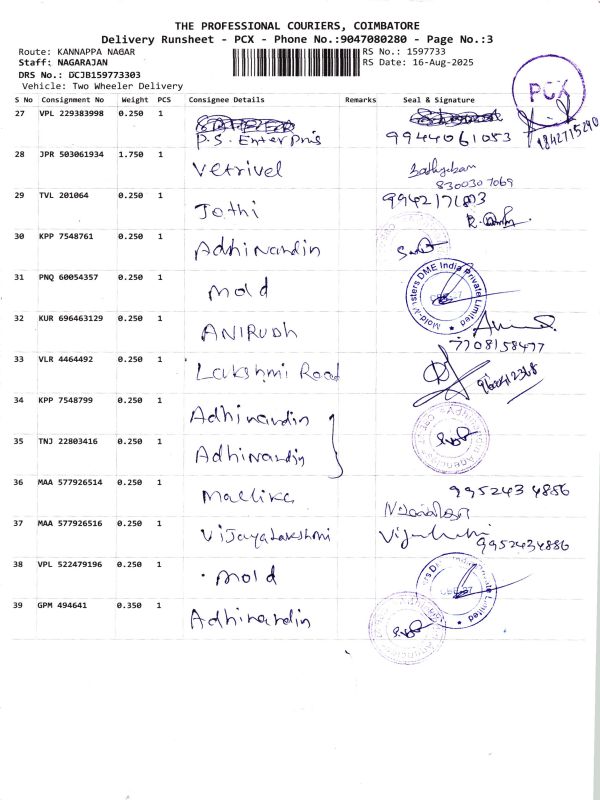 THE PROFESSIONAL COURIERS, COIMBATORE
Delivery Runsheet - PCX - Phone No.:9047080280 - Page No.:3
Route: KANNAPPA NAGAR
Staff: NAGARAJAN
DRS No.: DCJB159773303
Vehicle: Two Wheeler Delivery
RS No.: 1597733
RS Date: 16-Aug-2025
PCX
9842715290
S No Consignment No Weight PCS Consignee Details Remarks Seal & Signature
27 VPL 229383998 0.250 1 P.S. Enterpris 9944061053
28 JPR 503061934 1.750 1 Vetrivel
8300307069
29 TVL 201064 0.250 1 Jothi
30 KPP 7548761 0.250 1 Adhinandin
31 PNQ 60054357 0.250 1 mold
Mold-Masters DME India Private Limited
32 KUR 696463129 0.250 1 ANIRUDH
7708158477
33 VLR 4464492 0.250 1 Lakshmi Road
34 KPP 7548799 0.250 1 Adhinandin
35 TNJ 22803416 0.250 1 Adhinandin
36 MAA 577926514 0.250 1 Mallika 9952434886
37 MAA 577926516 0.250 1 Vijayalakshmi 9952434886
38 VPL 522479196 0.250 1 mold
39 GPM 494641 0.350 1 Adhinandin